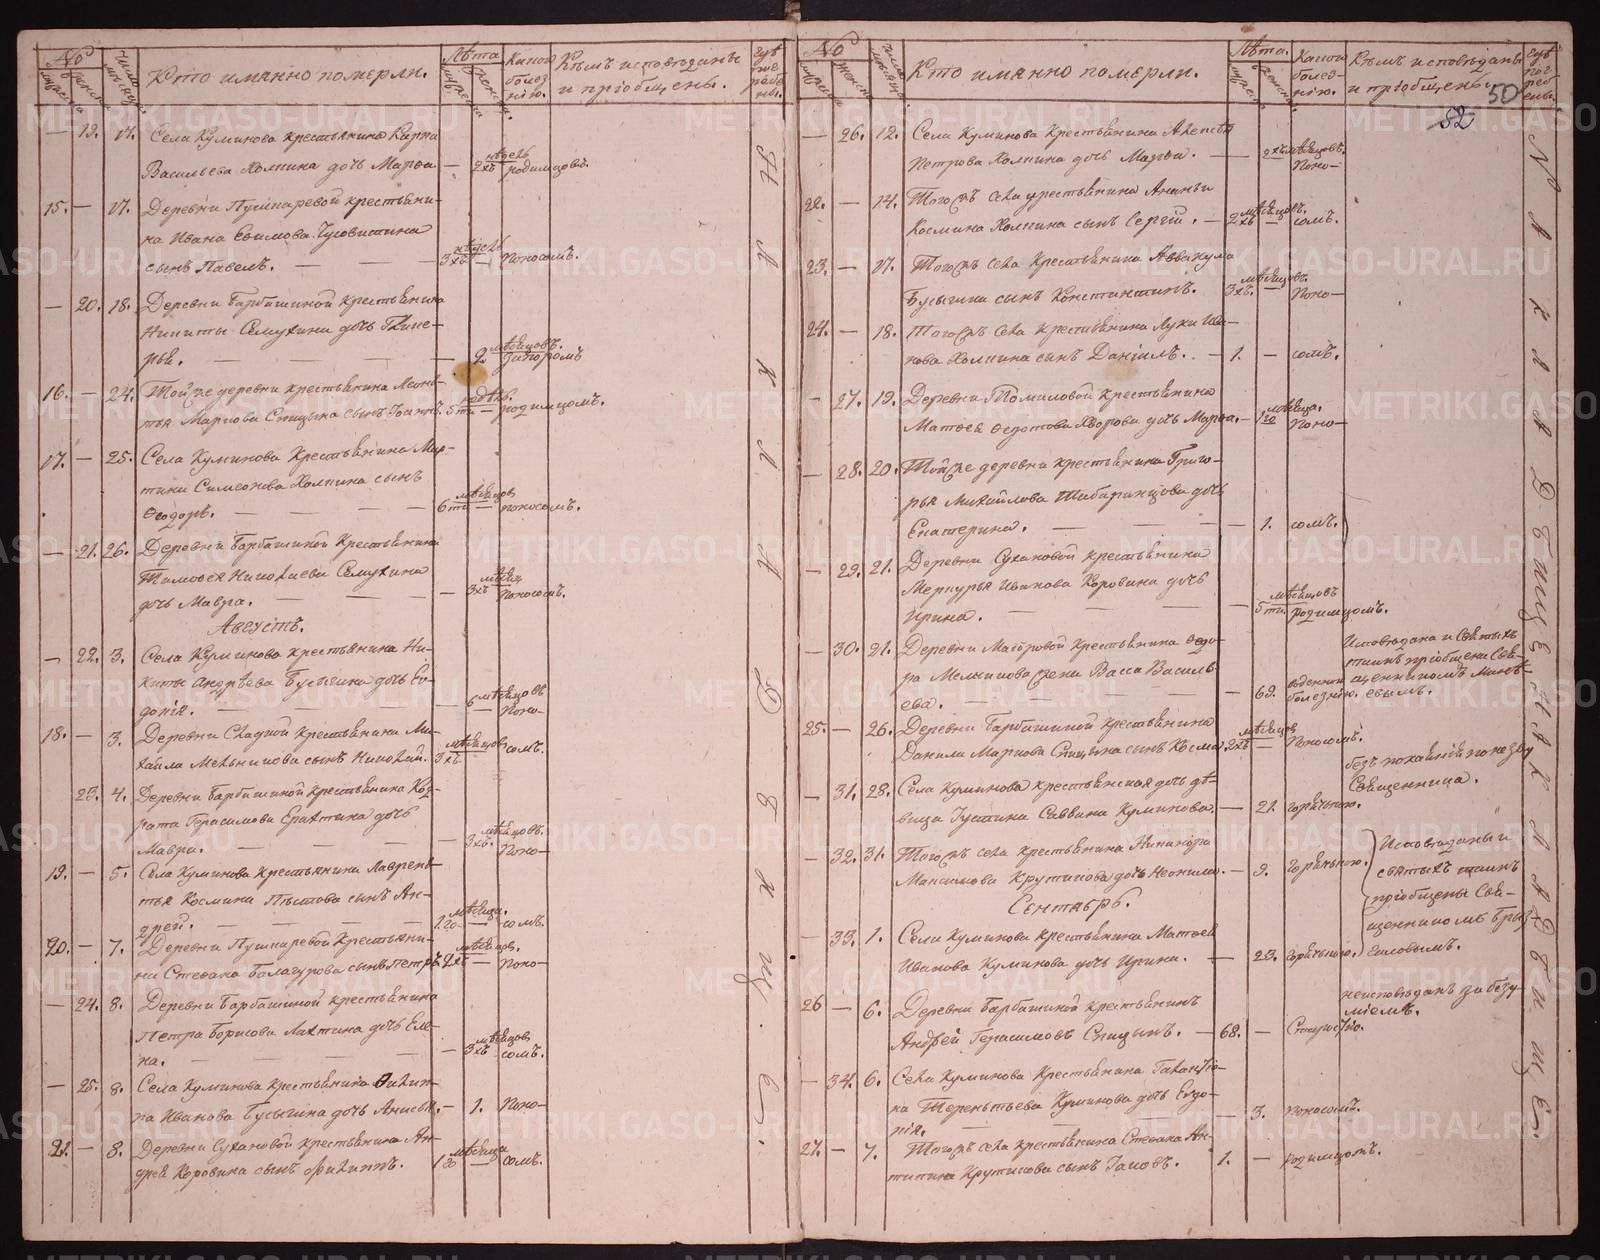 №
мужеска
женска
Число мѣсяца
Кто имянно померли.
Лѣта
мужеска
женска
Какою болез-
нію.
Кѣмъ исповѣданы
и пріобщены.
Гдѣ
погребены.
— 19. 17. Села Куминова крестьянина Карпа
Васильева Колпина дочь Марѳа — 2хъ недель родимцовъ.
15. — 17. Деревни Пушкаревой крестьяни-
на Ивана Ефимова
сынъ Павелъ. — — — 3хъ недель — поносомъ.
— 20. 18. Деревни Барбашиной крестьянина
Никиты Семухина дочь Глике-
рья. — — — — 9. мѣсяцовъ.
16. — 24. Той же деревни крестьянина Леон-
тья Маркова Спицына сынъ Іоаннъ. 5ти — родимцомъ.
17. — 25. Села Куминова крестьянина Мар-
тина Симеонова Колпина сынъ
Ѳеодоръ. — — — 6ти мѣсяцов — поносомъ.
— 21. 26. Деревни Барбашиной крестьянина
Тимоѳея Николаева Семухина
дочь Мавра. — — — — 3хъ мѣсяц поносомъ.
Августъ.
— 22. 3. Села Куминова крестьянина Ни-
киты Андрѣева Бусыгина дочь Ев-
докія. — — — — 6 мѣсяцовъ Поно-
18. — 3. Деревни Сладкой крестьянина Ми-
хаила Мельникова сынъ Николай. 3хъ мѣсяцов сомъ.
23. 4. Деревни Барбашиной крестьянина Код-
рата Герасимова Ерахтина дочь
Мавра. — — — — 3хъ. мѣсяцовъ. Поно-
19. — 5. Села Куминова крестьянина Лаврен-
тья Космина Пѣстова сынъ Ан-
дрей. — — — 1го мѣсяца. — сомъ.
20. — 7. Деревни Пушкаревой крестьяни-
на Стефана Балагурова сынъ Петръ 2хъ мѣсяцов. — Поно-
— 24. 8. Деревни Барбашиной крестьянина
Петра Борисова Лахтина дочь Еле-
на. — — — — — 3хъ мѣсяцов сомъ.
— 25. 8. Села Куминова крестьянина Филип-
па Иванова Бусыгина дочь Анисья. — 1. Поно-
21. — 8. Деревни Сухановой крестьянина Ан-
дрея Коровина сынъ Филиппъ. 1го мѣсяца — сомъ.
На кладбищѣ.
№
мужеска
женска
Число мѣсяца
Кто имянно померли.
Лѣта.
мужеска
женска
Какою
болез-
нію.
Кѣмъ исповѣданы
и пріобщены.
Гдѣ
погребены.
50
52
— 26. 12. Села Куминова крестьянина
Петрова Колпина дочь Марѳа. — 2хъ мѣсяцовъ. Поно-
22. — 14. Тогожъ села крестьянина Ананьи
Космина Колпина сынъ Сергій. — 2хъ мѣсяцовъ. — сомъ.
23. — 17. Тогожъ села крестьянина Аввакума
Бусыгина сынъ Константинъ. 3хъ. мѣсяцовъ. — Поно-
24. — 18. Тогожъ села крестьянина Луки Ива-
нова Колпина сынъ Даніилъ. — 1. — сомъ.
— 27. 19. Деревни Томиловой крестьянина
Матѳея Ѳедотова Хворова дочь Марѳа. — 1го мѣсяца. Поно-
— 28. 20. Той же деревни крестьянина Григо-
рья Михайлова дочь
Екатерина. — — — — 1. сомъ.
— 29. 21. Деревни Сухановой крестьянина
Меркурья Иванова Коровина дочь
Ирина. — — — — 5ти. мѣсяцовъ родимцомъ.
— 30. 21. Деревни крестьянина Ѳедо-
ра Мельникова жена Васса Василь-
ева. — — — — 69. болезнію. Исповѣдана и Святыхъ
таинъ пріобщена Свя-
щенникомъ
25. — 26. Деревни Барбашиной крестьянина
Данила Маркова Спицына сынъ Косма. 2хъ мѣсяцов — Поносомъ.
— 31. 28. Села Куминова крестьянская дочь дѣ-
вица Іустина Саввина Куминова. — 21. горячкою. безъ покаянія по незву
Священника.
— 32. 31. Тогожъ села крестьянина Никанора
Максимова Крутикова дочь Неонила. — 9. Горячкою. Исповѣданы и
святыхъ таинъ
пріобщены Свя-
щенникомъ Брыз-
галовымъ.
Сентябрь.
— 33. 1. Села Куминова крестьянина Матѳея
Иванова Куминова дочь Ирина. — 23. горячкою.
26 — 6. Деревни Барбашиной крестьянинъ
Андрей Герасимовъ Спицынъ. — 68. — Старостію. неисповѣданъ за безу-
міемъ.
— 34. 6. Села Куминова крестьянина Галактіо-
на Терентьева Куминова дочь Евдо-
кія. — — — — 3. поносомъ.
27. — 7. Тогожъ села крестьянина Стефана Ан-
типина Крутикова сынъ Іаковъ. 1. — родимцомъ.
На кладбищѣ на кладбищѣ
METRIKI.GASO-URAL.RU